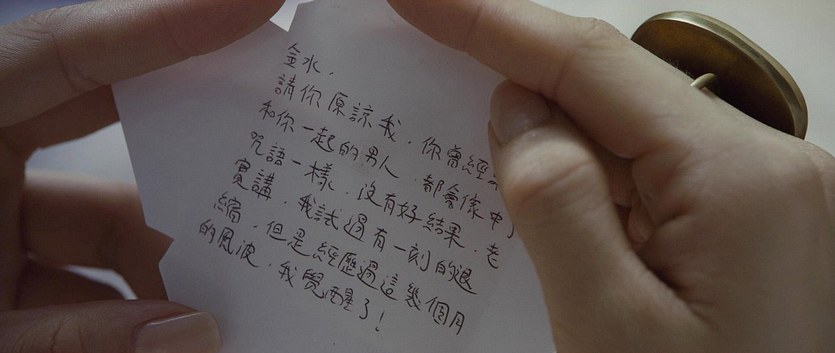 金水，
請你原諒我，你曾經
和你一起的男人，都會像中了
咒語一樣，沒有好結果，老
實講，我試過有一刻的退
縮，但是經歷過這幾個月
的風波，我覺醒了！